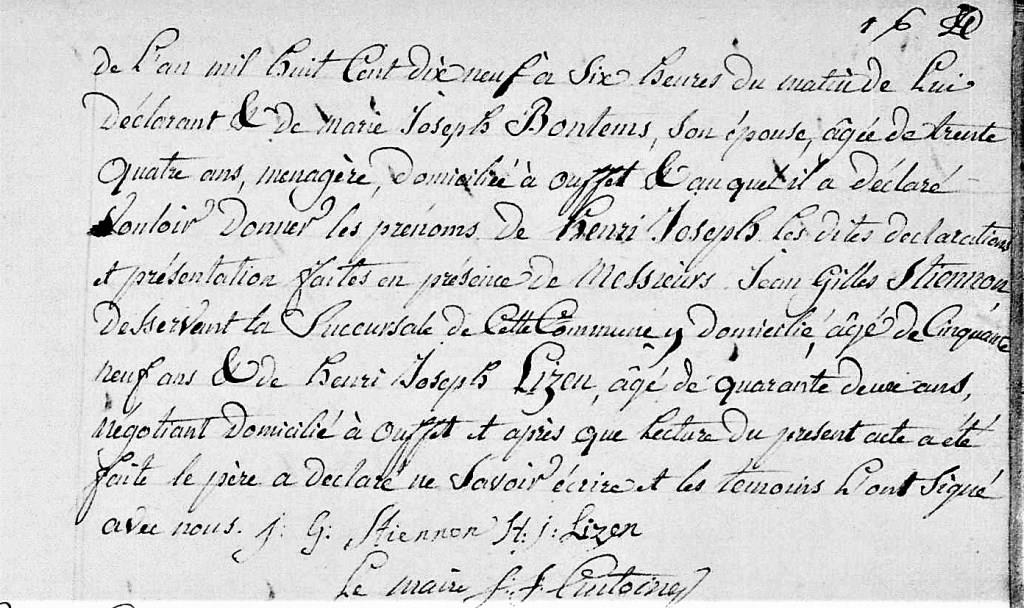 16
de L'an mil huit Cent dix neuf à Six heures du matin de Lui
Déclarant & de marie Joseph Bontems, son épouse, âgée de trente
quatre ans, menagère, domiciliée à ouffet & auquel il a déclaré
Vouloir donner les prénoms de henri Joseph. Les dites declarations
et présentation faites en présence de Messieurs Jean Gilles Stiennon
Desservant la Succursale de Cette Commune y domicilié, âgé de Cinquante
neuf ans & de henri Joseph Lizen, âgé de quarante deux ans,
négotiant domicilié à ouffet et après que lecture du present acte a été
faite le père a declaré ne Savoir écrire et les temoins L'ont Signé
avec nous. J: G: Stiennon H: j: Lizen
Le maire